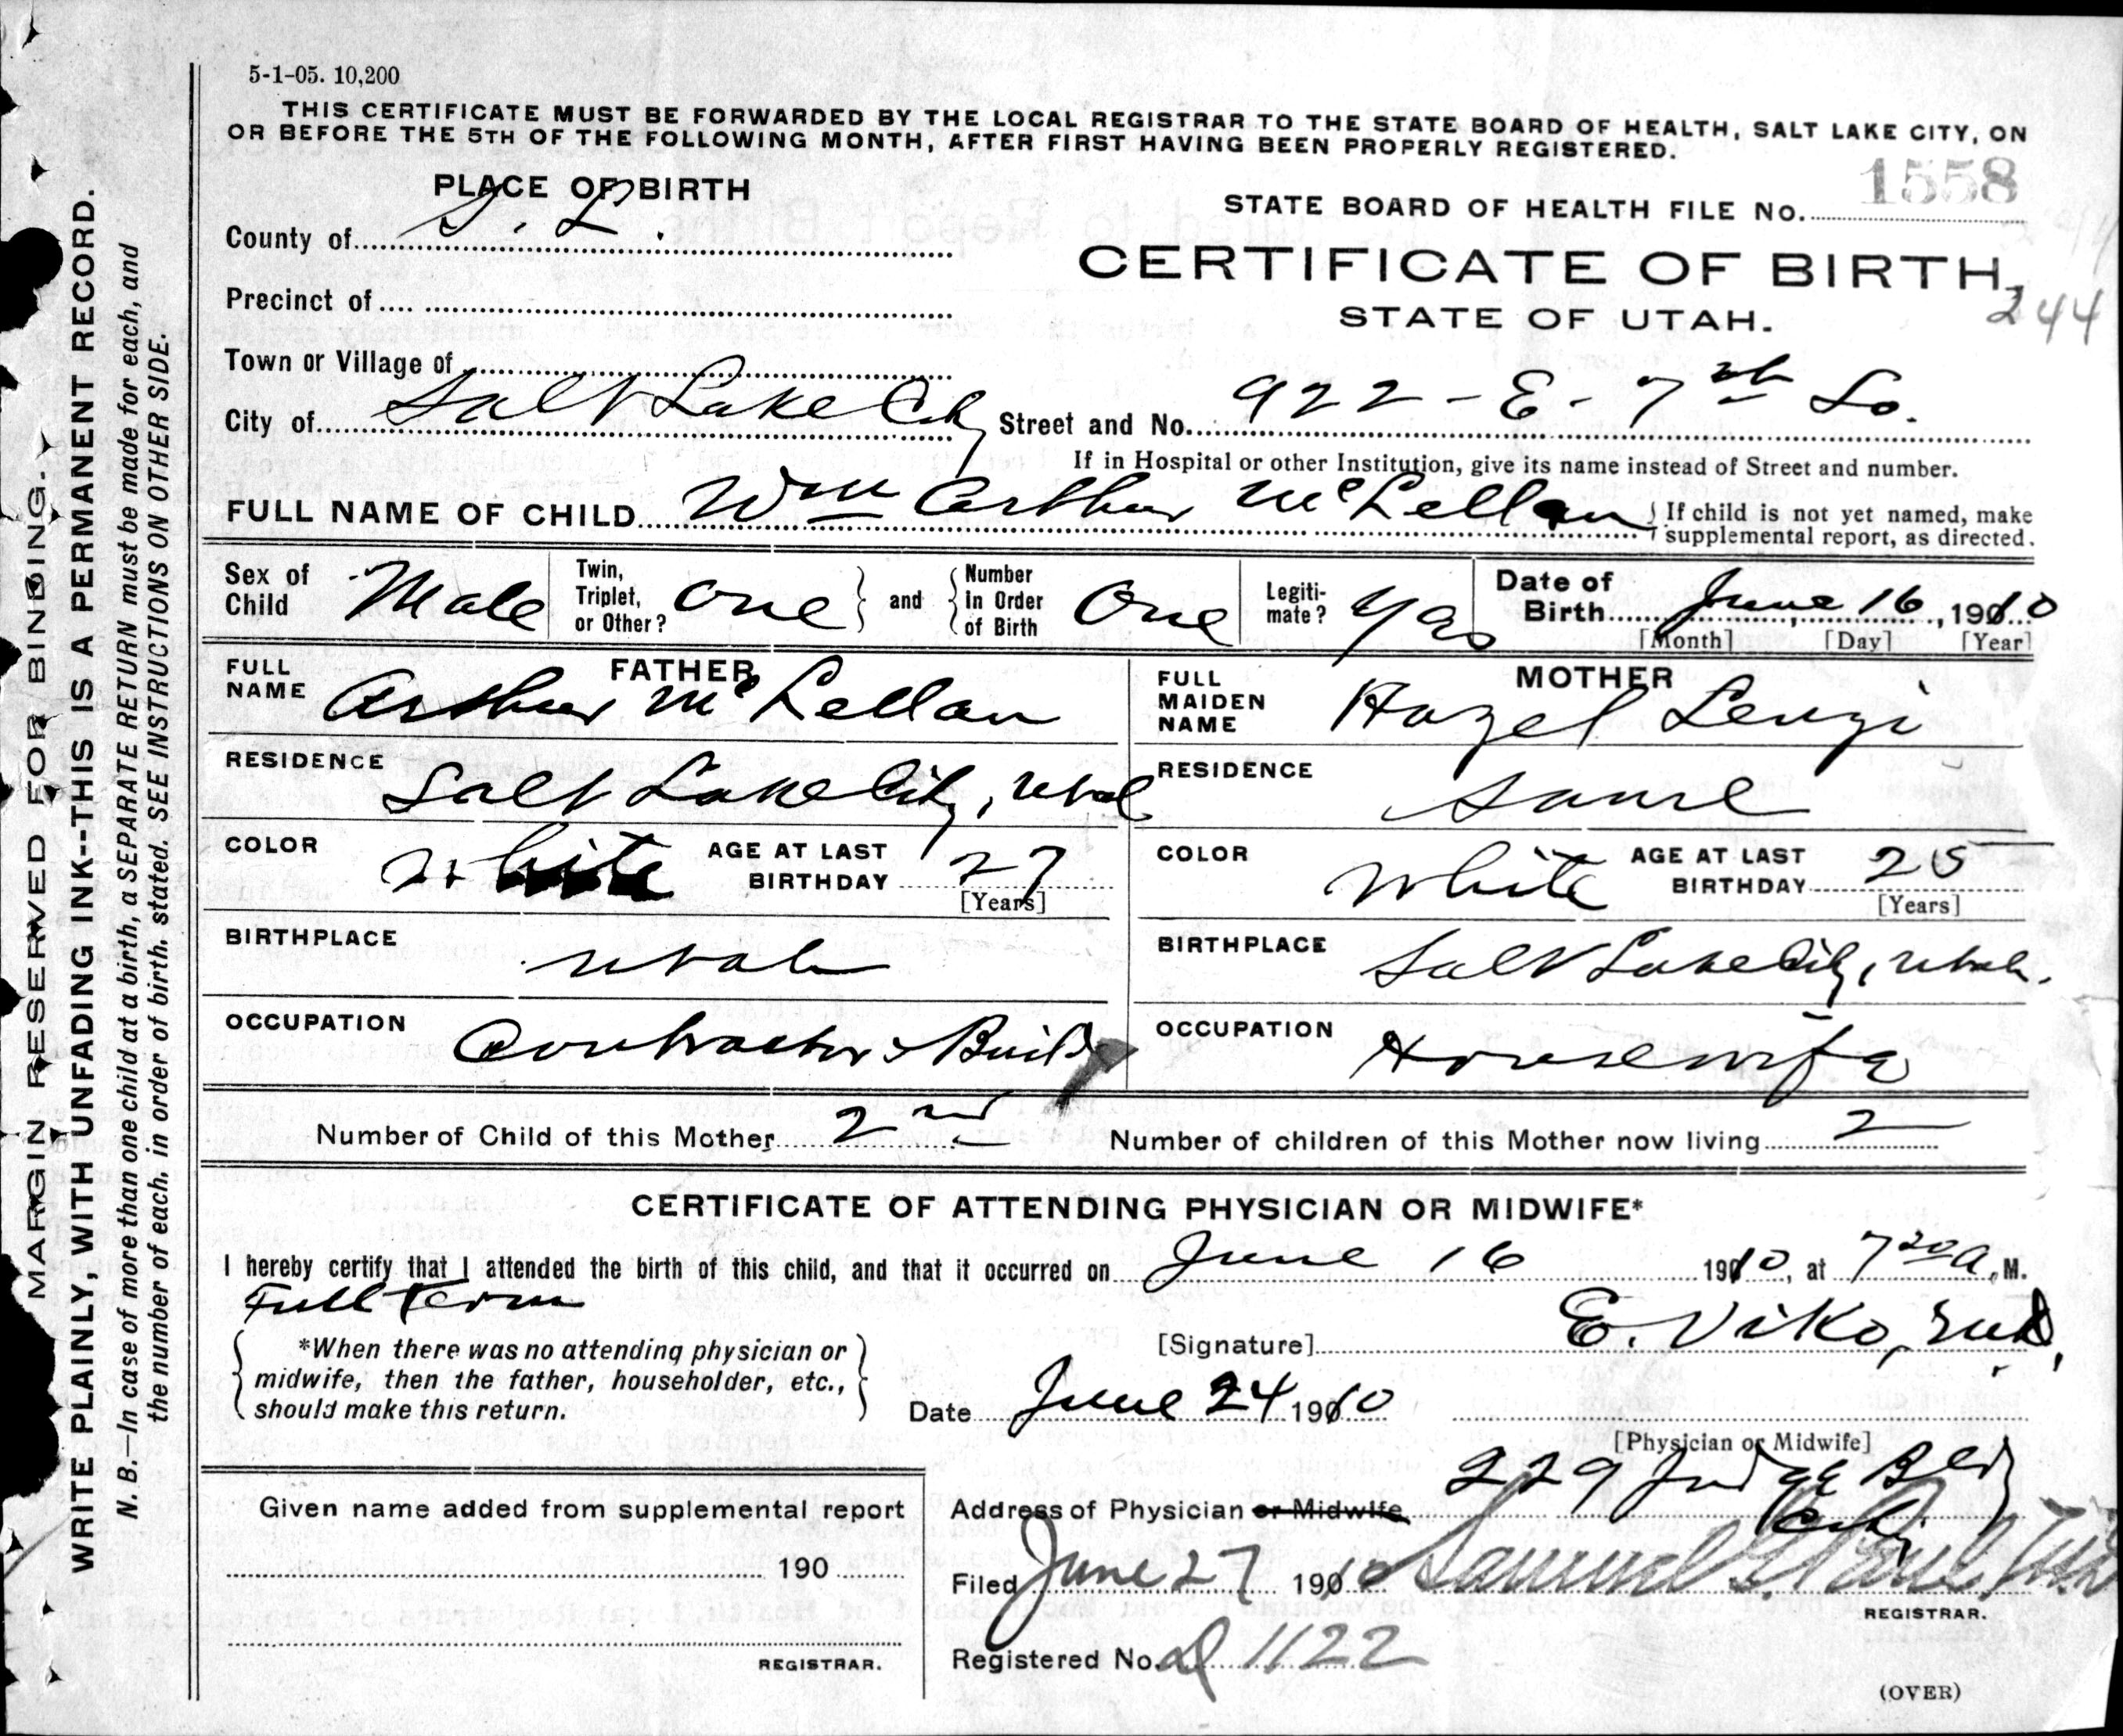 5-1-05. 10,200
THIS CERTIFICATE MUST BE FORWARDED BY THE LOCAL REGISTRAR TO THE STATE BOARD OF HEALTH, SALT LAKE CITY, ON
OR BEFORE THE 5TH OF THE FOLLOWING MONTH, AFTER FIRST HAVING BEEN PROPERLY REGISTERED.
1558
PLACE OF BIRTH
STATE BOARD OF HEALTH FILE No.
County of S. L.
CERTIFICATE OF BIRTH,
244
Precinct of
STATE OF UTAH.
Town or Village of
City of Salt Lake City Street and No. 922 - E - 7th So.
If in Hospital or other Institution, give its name instead of Street and number.
FULL NAME OF CHILD Wm Arthur McLellan { If child is not yet named, make
supplemental report, as directed.
Sex of Child Male Twin, Triplet, or Other? One } and { Number In Order of Birth One Legiti-mate? Yes Date of Birth June 16, 1910
[Month] [Day] [Year]
FATHER MOTHER
FULL NAME Arthur McLellan FULL MAIDEN NAME Hazel Lenzi
RESIDENCE Salt Lake City, Utah RESIDENCE Same
COLOR White AGE AT LAST BIRTHDAY 27 [Years] COLOR White AGE AT LAST BIRTHDAY 25 [Years]
BIRTHPLACE Utah BIRTHPLACE Salt Lake City, Utah.
OCCUPATION Contractor & Build OCCUPATION Housewife
Number of Child of this Mother 2nd Number of children of this Mother now living 2
CERTIFICATE OF ATTENDING PHYSICIAN OR MIDWIFE*
I hereby certify that I attended the birth of this child, and that it occurred on June 16 1910, at 7 20 A. M.
Full Term
*When there was no attending physician or
midwife, then the father, householder, etc.,
should make this return.
[Signature] E. Viko, MD,
Date June 24 1910
[Physician or Midwife]
Given name added from supplemental report
190
REGISTRAR.
229 Judge Bld
Address of Physician or Midwife City
Filed June 27 1910 Samuel G. Paul
REGISTRAR.
Registered No. D 1122
(OVER)
MARGIN RESERVED FOR BINDING.
WRITE PLAINLY, WITH UNFADING INK--THIS IS A PERMANENT RECORD.
N. B.—In case of more than one child at a birth, a SEPARATE RETURN must be made for each, and
the number of each, in order of birth, stated. SEE INSTRUCTIONS ON OTHER SIDE.